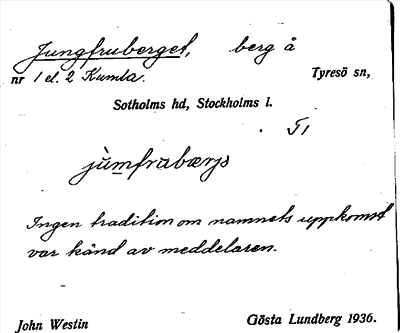 Jungfruberget, berg å
nr 1 el. 2 Kumla. Tyresö sn,
Sotholms hd, Stockholms l.
T1
jùmfrabærjs
Ingen tradition om namnets uppkomst
var känd av meddelaren.
John Westin Gösta Lundberg 1936.